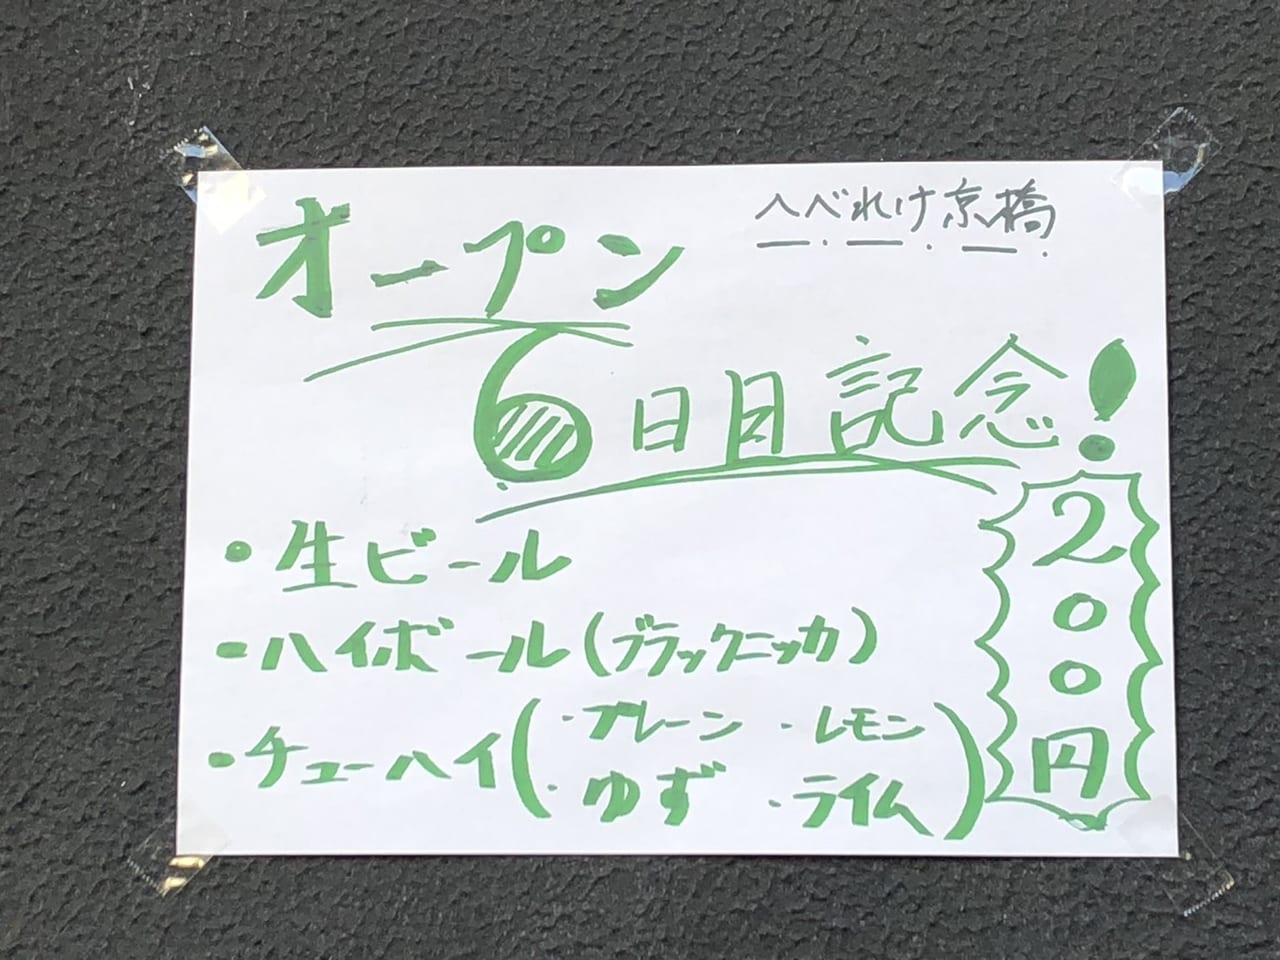 へべれけ京橋
オープン
6日目記念!
・生ビール
・ハイボール(ブラックニッカ)
・チューハイ(・プレーン ・レモン
・ゆず ・ライム)
200円